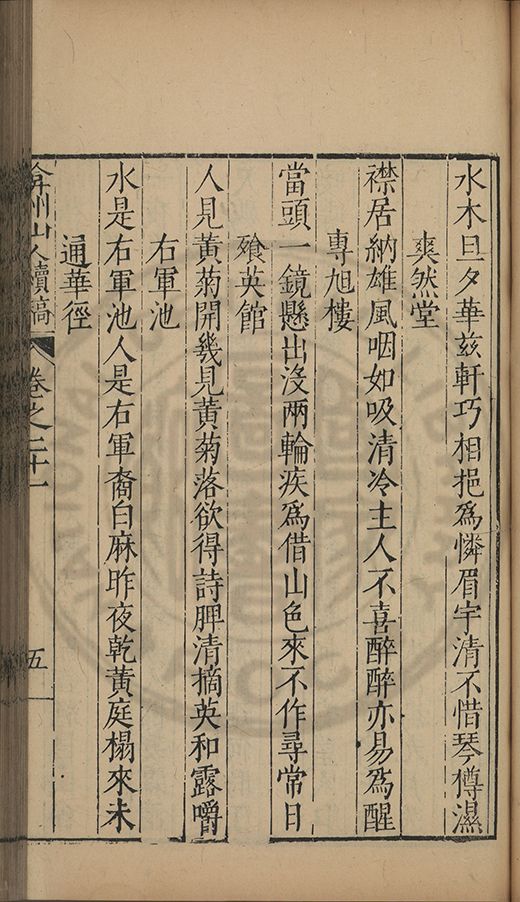 水木旦夕華茲軒巧相挹爲憐眉宇清不惜琴樽濕
爽然堂
襟居納雄風咽如吸清冷主人不喜醉醉亦易爲醒
專旭樓
當頭一鏡懸出沒兩輪疾爲借山色來不作尋常日
飱英館
人見黃菊開幾見黃菊落欲得詩脾清摘英和露嚼
右軍池
水是右軍池人是右軍裔白麻昨夜乾黃庭榻來未
通華徑
弇州山人續稿 卷之二十一 五